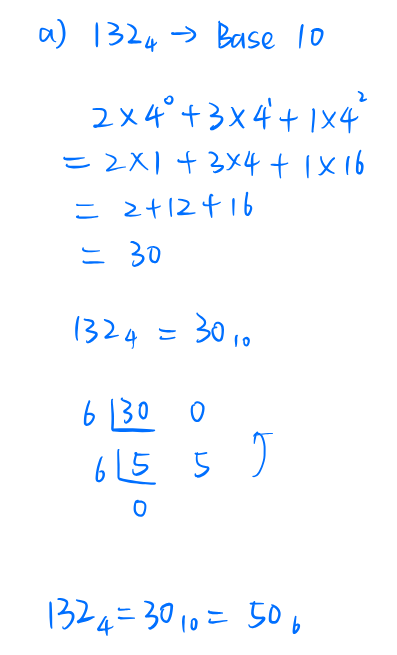 a) 132₄ → Base 10
2×4⁰+3×4¹+1×4²
= 2×1 + 3×4 + 1×16
= 2+12+16
= 30
132₄ = 30₁₀
6 30 0
6 5 5
0
132₄ = 30₁₀ = 50₆